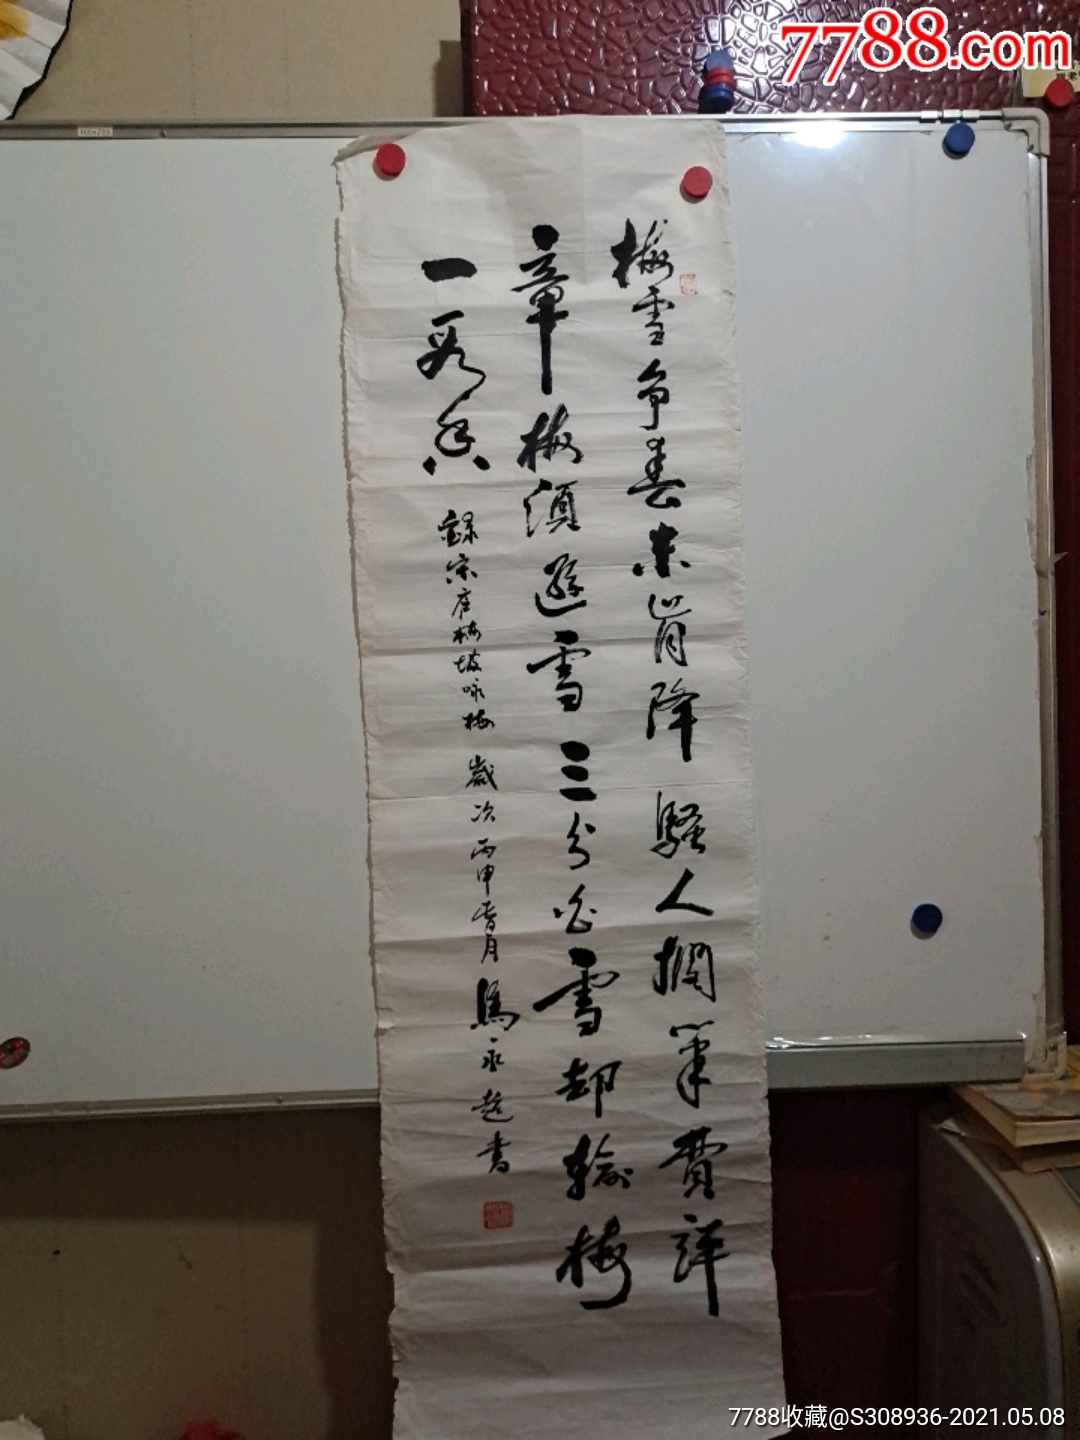 7788.com
梅雪争春未肯降騷人擱筆費評
章梅須遜雪三分白雪却輸梅
一段香
錄宋盧梅坡咏梅 歲次丙申月 馬永超書
7788收藏@S308936-2021.05.08